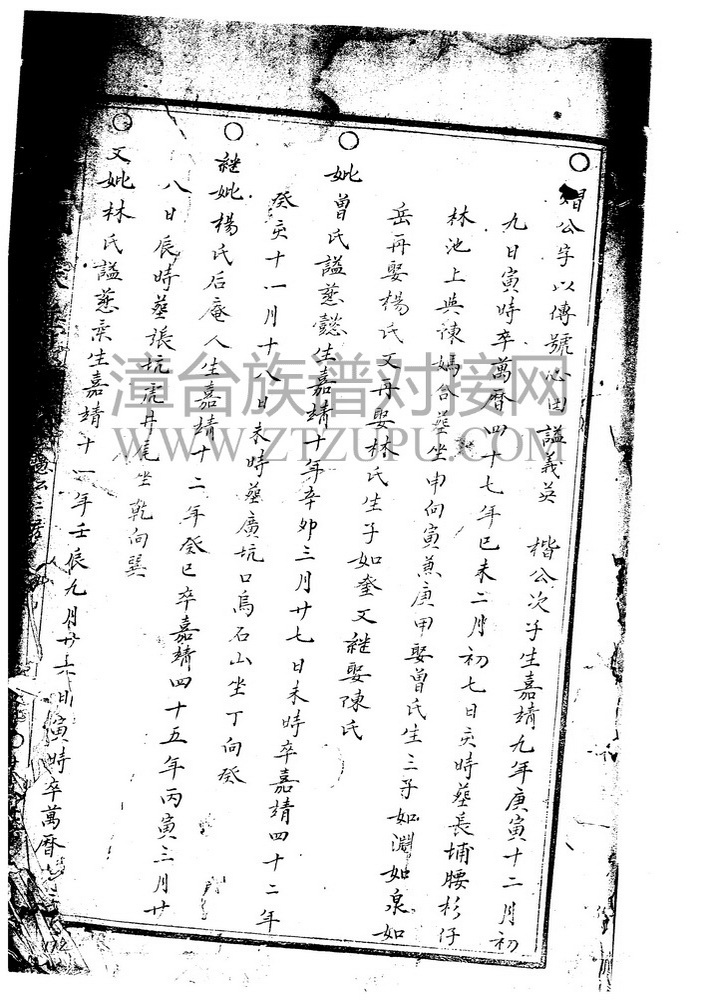 公字以傳號心田謚義英 楷公次子生嘉靖九年庚寅十二月初
九日寅時卒萬曆四十七年己未二月初七日亥時葬長埔腰杉仔
林池上與諫媽合葬坐申向寅兼庚甲娶曾氏生三子如淵如泉如
岳再娶楊氏又再娶林氏生子如奎又継娶陳氏
妣曾氏謚慈懿生嘉靖十年辛卯三月廿七日未時卒嘉靖四十二年
癸亥十一月十八日未時葬廣坑口烏石山坐丁向癸
継妣楊氏后庵人生嘉靖十二年癸巳卒嘉靖四十五年丙寅三月廿
八日辰時葬張坑虎丹尾坐乾向巽
又妣林氏謚慈柔生嘉靖十一年壬辰九月廿日寅時卒萬曆
漳台族谱对接网
WWW.ZTZUPU.COM